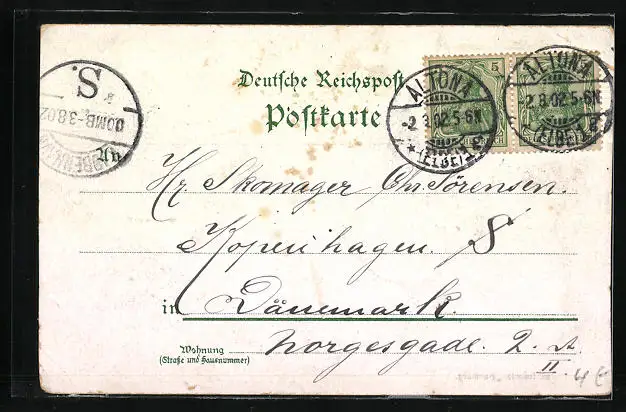 Deutsche Reichspost
Postkarte
5
ALTONA
2.8.02.5-6N
* (ELBE) 2
ALTONA
2.8.02.5-6N
(ELBE) 2
S.
OMB. 3 8 02
An
Hr. Skomager Chr. Sörensen.
Kopenhagen. S
in Dänemark.
Norgesgade. 2. A
II.
Wohnung
(Straße und Hausnummer)
4 E